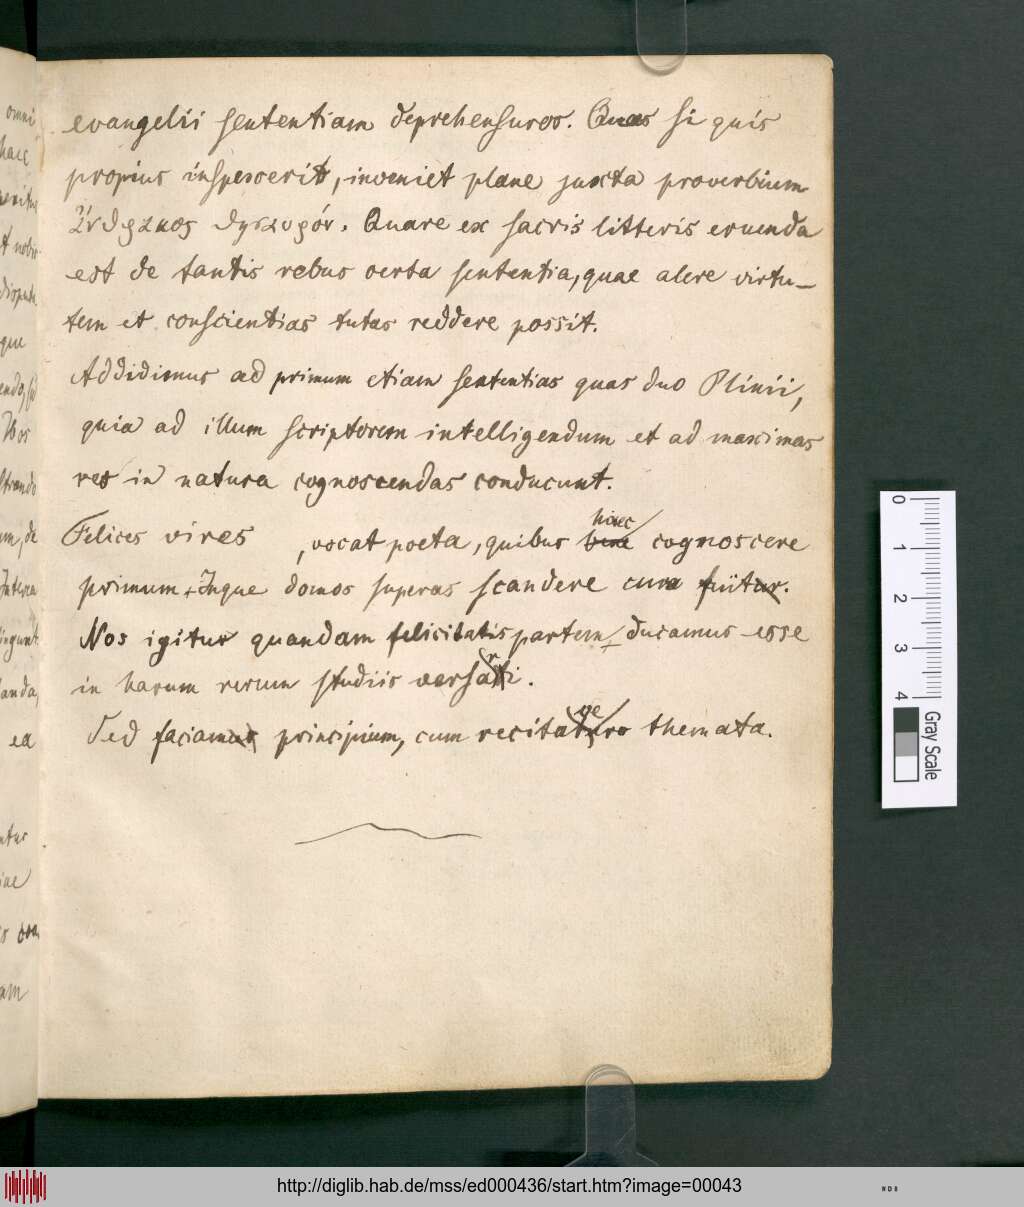 evangelii sententiam deprehensuros. Quas si quis
propius inspexerit, inveniet plane juxta proverbium
ἄνθρακος θησαυρόν. Quare ex sacris litteris eruenda
est de tantis rebus certa sententia, quae alere virtu-
tem et conscientias tutas reddere possit.
Addidimus ad primum etiam sententias quas duo Plinii,
quia ad illum scriptorem intelligendum et ad maximas
res in natura cognoscendas conducunt.
Felices vires , vocat poeta, quibus haec cognoscere
primum, Inque domos superas scandere cura fuit.
Nos igitur quandam felicitatis partem ducamus esse
in harum rerum studiis versari.
Sed faciam principium, cum recitavero themata.
omni
haec
t nobis
que
Nos
ea
am
0
1
2
3
4
Gray Scale
http://diglib.hab.de/mss/ed000436/start.htm?image=00043